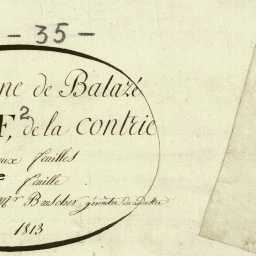 - 35 -
ne de Balazé
F, 2 de la contrie
eux feuilles
e feuille
Mr géomètre du Cadastre
1813